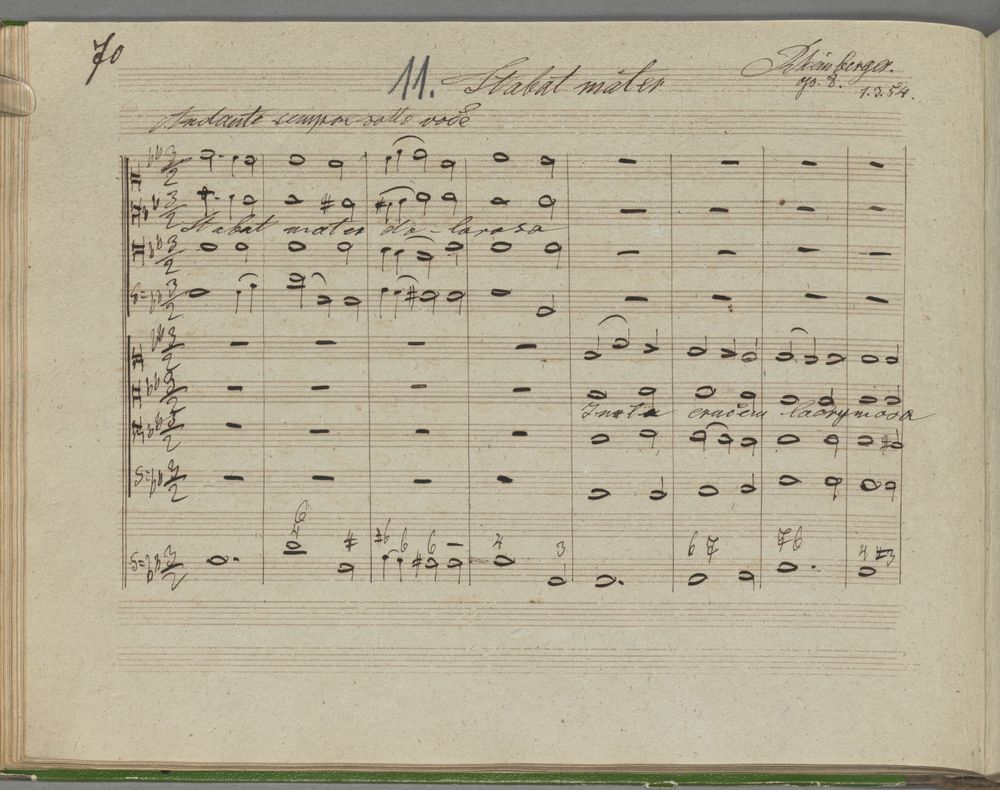 70
11. Stabat mater
Rheinberger.
op. 8.
1.3.54.
Andante sempre sotto voce
Stabat mater do-lorosa
Juxta crucem lacrymosa
6
4 #
#6 6 6 –
4 3
6 7
7 6
4 #3